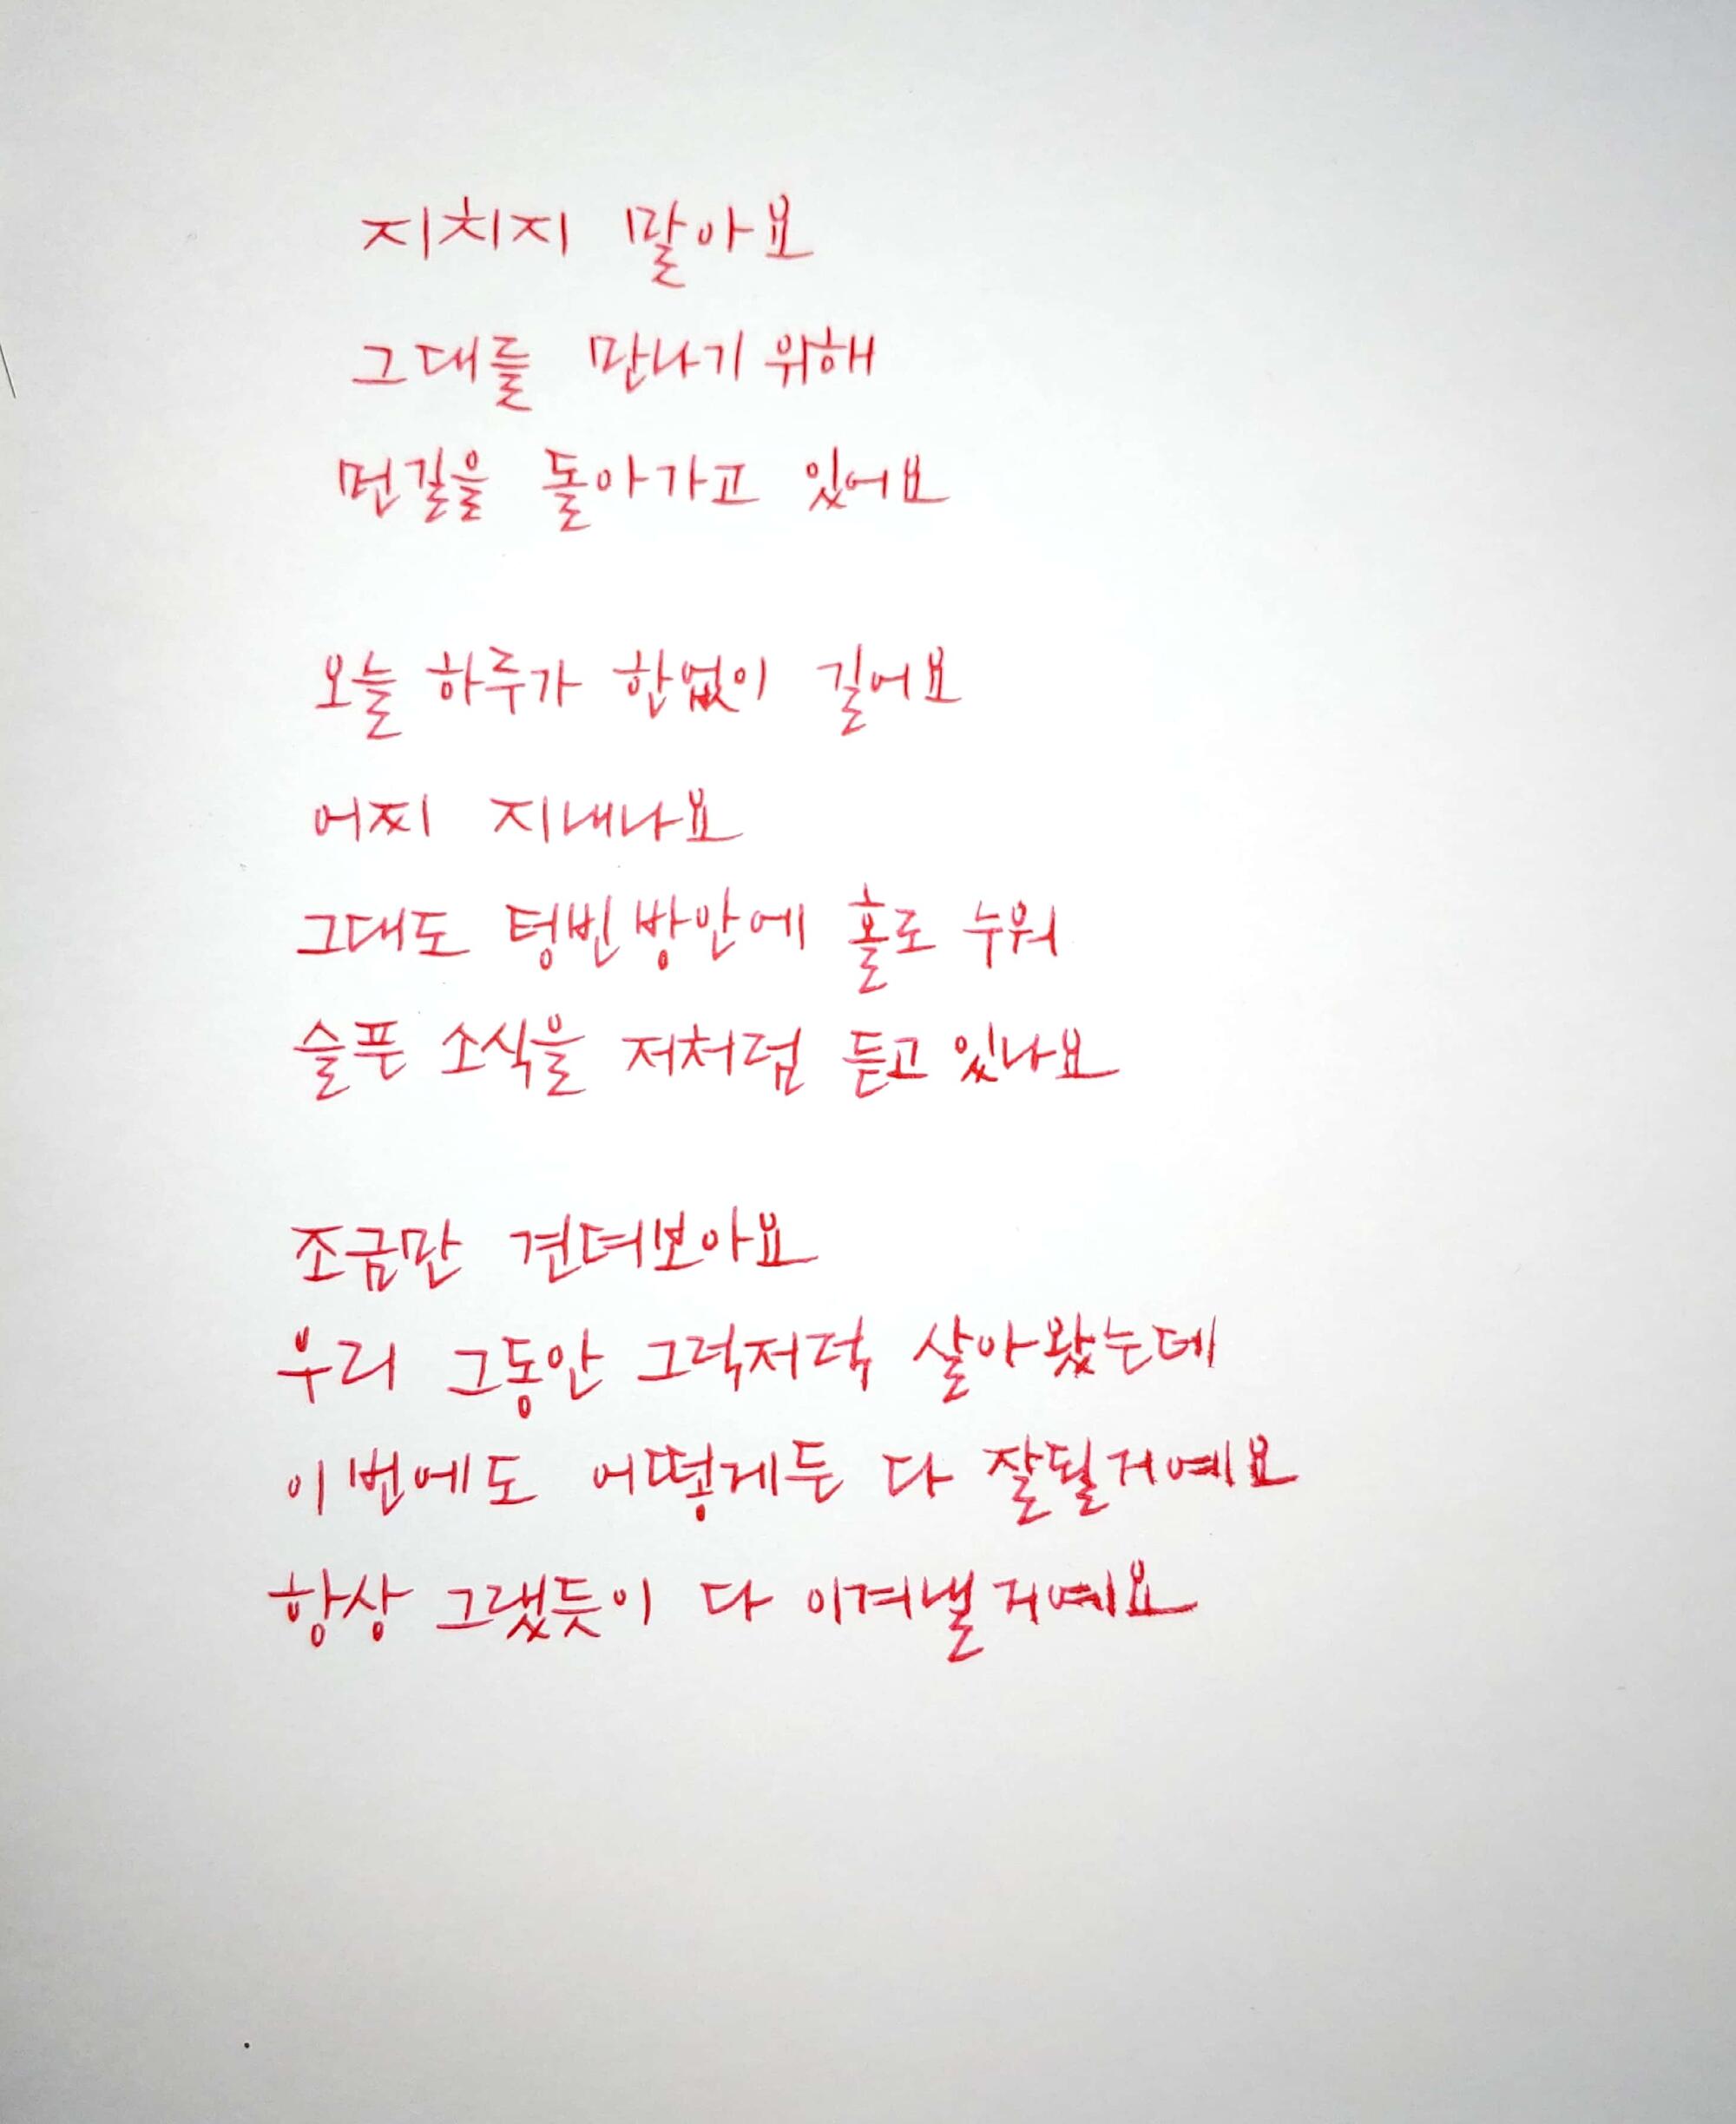 지치지 말아요
그대를 만나기 위해
먼길을 돌아가고 있어요
오늘 하루가 한없이 길어요
어찌 지내나요
그대도 텅빈 방안에 홀로 누워
슬픈 소식을 저처럼 듣고 있나요
조금만 견뎌보아요
우리 그동안 그럭저럭 살아왔는데
이번에도 어떻게든 다 잘될거예요
항상 그랬듯이 다 이겨낼거예요